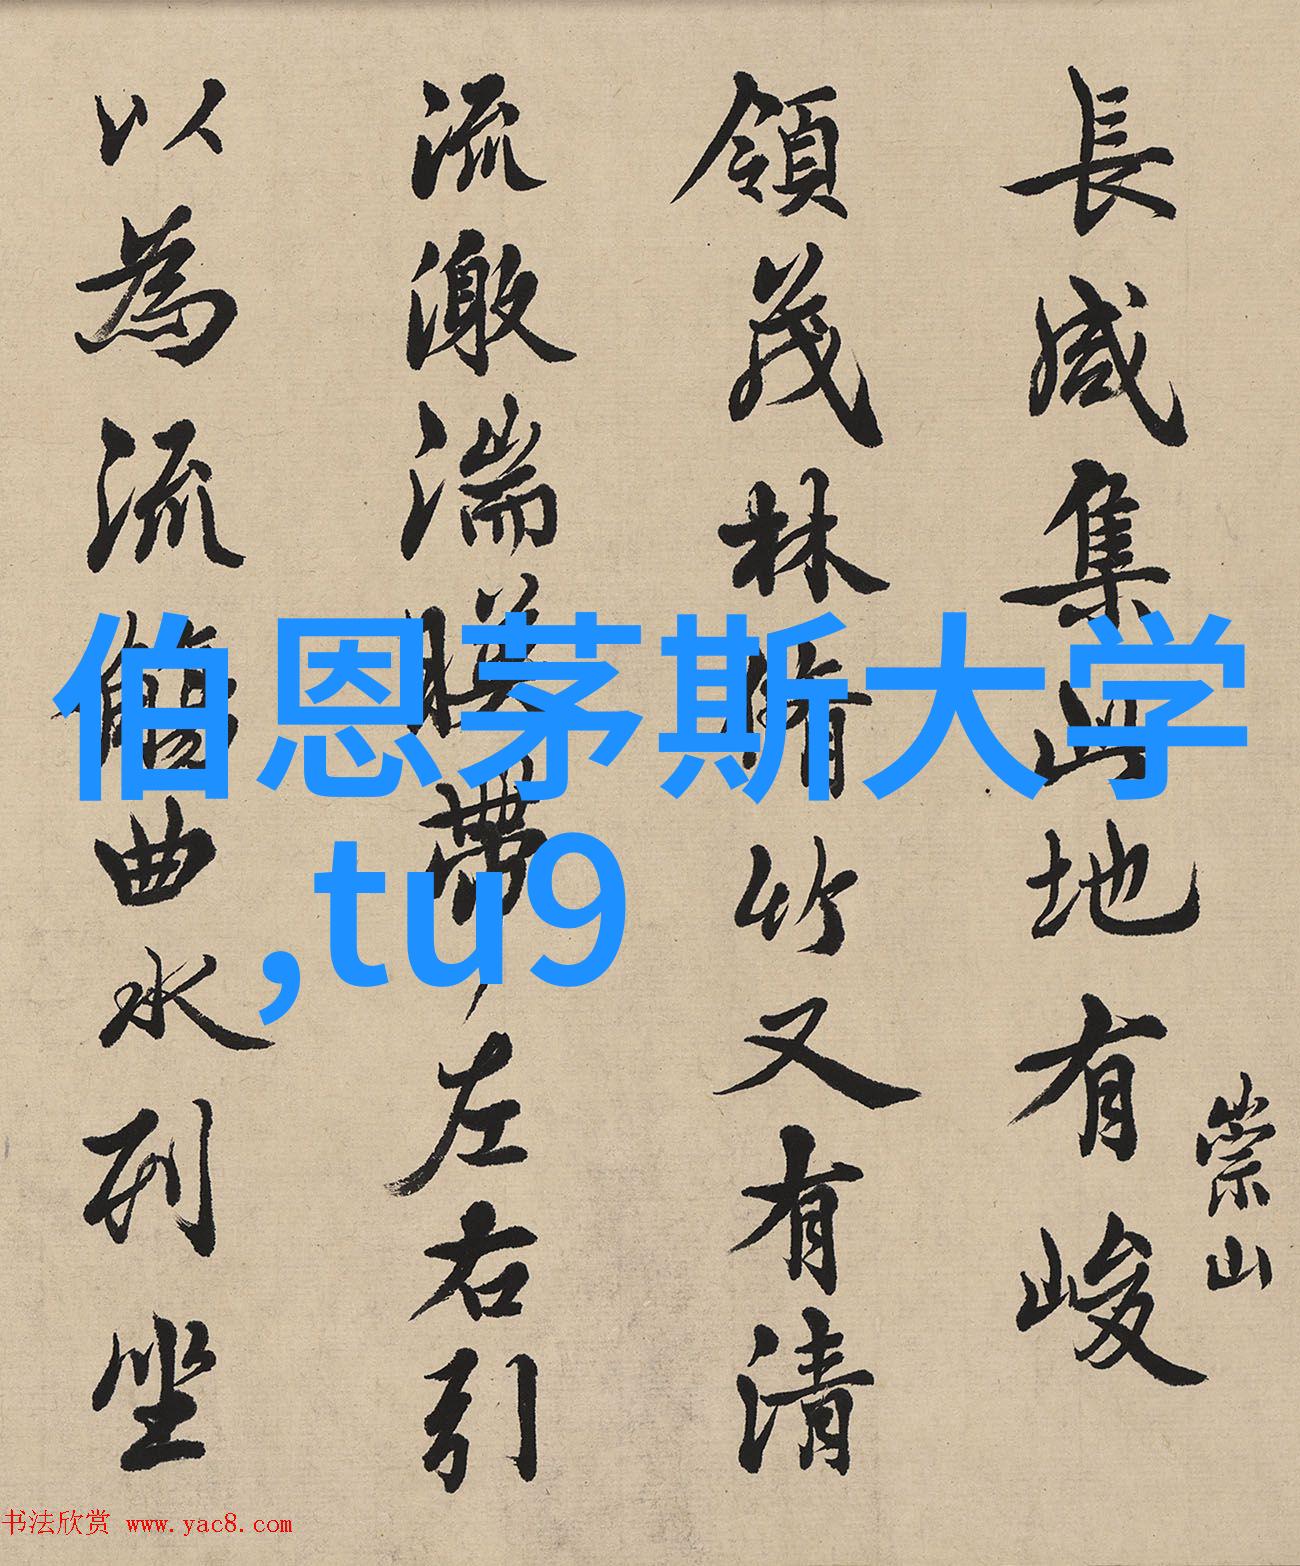 長咸集此地有峻
崇山
領茂林脩竹又有清
流激湍暎帶左右引
以為流觴曲水列坐
伯恩茅斯大学
,tu9
书法欣赏 www.yac8.com